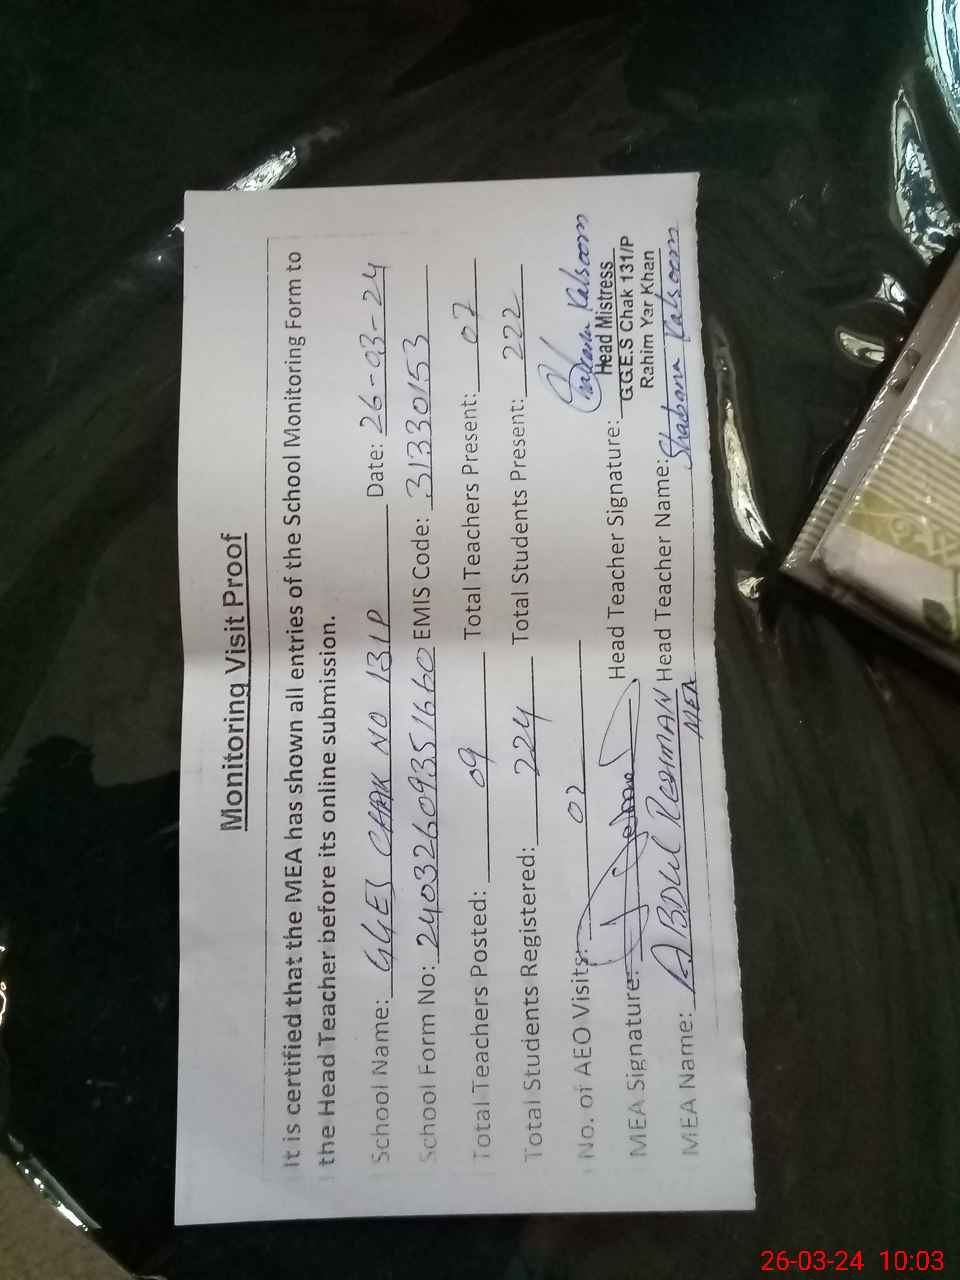 Monitoring Visit Proof
It is certified that the MEA has shown all entries of the School Monitoring Form to
the Head Teacher before its online submission.
School Name: GGES CHAK NO 131P Date: 26-03-24
School Form No: 24032609351660 EMIS Code: 31330153
Total Teachers Posted: 09 Total Teachers Present: 07
Total Students Registered: 224 Total Students Present: 222
No. of AEO Visits: 02
MEA Signature: Head Teacher Signature: Kalsoom
Head Mistress
G.G.E.S Chak 131/P
Rahim Yar Khan
MEA Name: ABDUL REHMAN MEA Head Teacher Name: Shabana Kalsoom
26-03-24 10:03